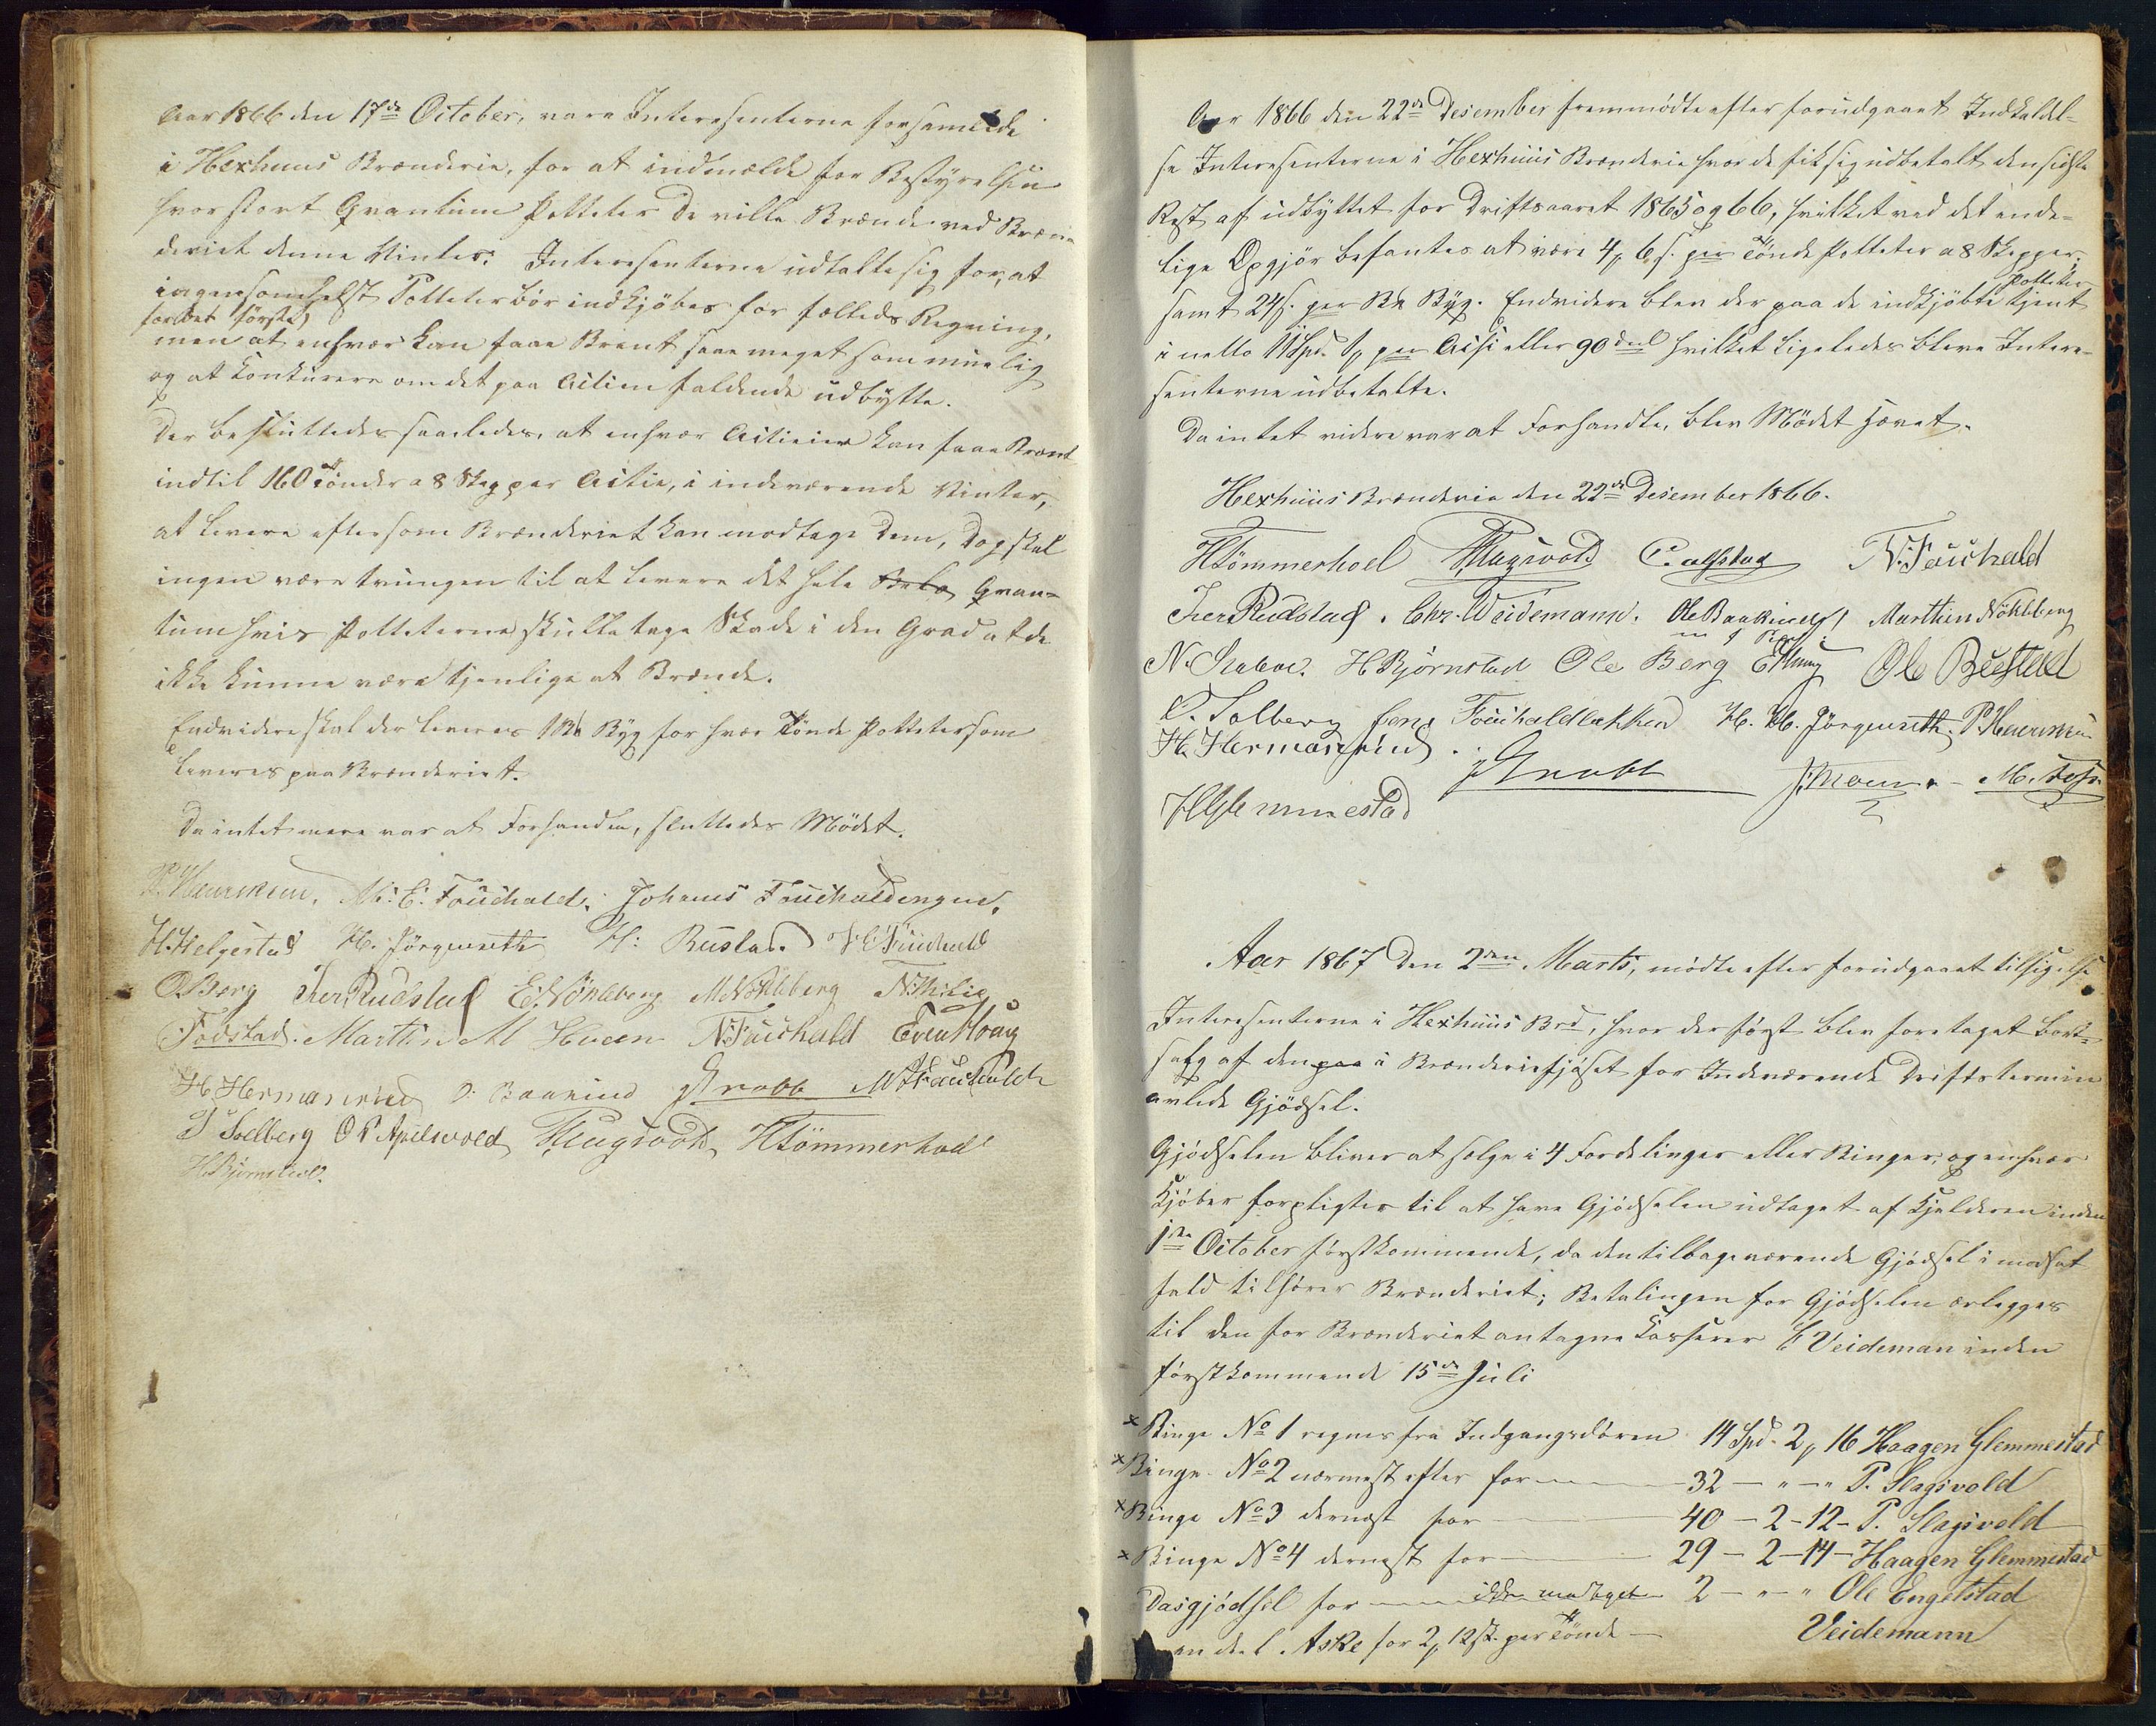 Aar 1866 den 17de October, vare Interesenterne forsamlede
i Hexhuus Brænderie, for at indmælde for Bestyrelsen
hvor stort Qvantum Potteter De ville Brænde ved Bræn-
deriet denne Vinter. Interesenterne udtalte sig for, at
ingensomhelst Potteter bør indkjøbes for fælleds Regning,
for det første)
men at enhver kan faae Brænt saae meget som muelig
og at konkurere om det paa Actien faldende udbytte.
Der besluttedes saaledes, at enhver Actieier kan faae Brænt
indtil 160 Tønder a 8 Skp per Actie, i indeværende Vinter,
at levere eftersom Brænderiet kan modtage dem, dog skal
ingen være tvungen til at levere det hele Qvan-
tum hvis Potteterne skulle tage Skade i den Grad at de
ikke kunne være tjenlige at Brænde.
Endvidere skal der leveres 1 Byg for hver Tønde Potteter som
leveres paa Brænderiet.
Da intet mere var at Forhandle, sluttedes Mødet.
P. Henriksen. M. E. Fouchald. Johanes Fouchaldengen.
H. Helgestad H. Jørgenrett H: Rustad
O Berg Iver Rudstad E. Nøkleberg M Nøkleberg N. Thilie
Fodstad. Martin M Hveen N. Fouchald Even Houg
H. Hermanrud O. Baakind Krabb M Fouchald
Solberg O P Apelsvold P. Slagsvold H Tømmerhoel
H. Bjørnstad.
Aar 1866 den 22de Desember fremmødte efter forudgaaet Indkaldel-
se Interesenterne i Hexhuus Brænderie hvor de fik sig udbetalt den sidste
Rest af udbyttet for Driftsaaret 1865 og 66, hvilket ved det ende-
lige Opgjør befantes at være 4, 6 s. per Tønde Potteter a 8 Skepper,
samt 24 s. per Byg. Endvidere blev der paa de indkjøbte Potteter tjent
i netto 11 Spd. per Acsi eller 90 deel hvilket ligeledes bleve Intere-
senterne udbetalte.
Da intet videre var at Forhandle, blev Mødet hævet.
Hexhuus Brænderie den 22de Desember 1866.
H Tømmerhoel P. Slagsvold C. Alfstad N. Fouchald
Iver Rudstad. Chr. Weidemann. Ole Baakind Marthin Nøkleberg
N. H Bjørnstad Ole Berg E Houg Ole Bustad
O. Solberg Fouchaldløkken H. H. Jørgenrett. P. Henriksen
H. Hermanrud. Krabb J. Moen M.
H Glemmestad
Aar 1867 den 2den Marts, mødte efter forudgaaet tilsigelse
Interesenterne i Hexhuus Brd, hvor der først blev foretaget Bort-
salg af den paa i Brænderiefjøset for Indeværende Driftstermin
avlede Gjødsel.
Gjødselen bliver at sælge i 4 Fordelinger eller Binger, og enhver
Kjøber forpligtes til at have Gjødselen udtaget af Kjelderen inden
1ste October førstkommende, da den tilbageværende Gjødsel i modsat
fald tilhører Brænderiet; Betalingen for Gjødselen erlegges
til den for Brænderiet antagne Kasserer C Veideman inden
førstkommende 15de Juli
x Binge No 1 regnes fra Indgangsdøren 14 Spd. 2, 16 Haagen Glemmestad
x Binge No 2 nærmest efter for — 32 — " — " P. Slagsvold
x Binge No 3 dernest for — 40 — 2 - 12 - P. Slagsvold
x Binge No 4 dernest for — 29 — 2 - 14 - Haagen Glemmestad
Dasgjødsel for — ikke modtaget 2 — " " Ole Engelstad
en deel Aske for 2, 12 sk. per Tønde — Veidemann